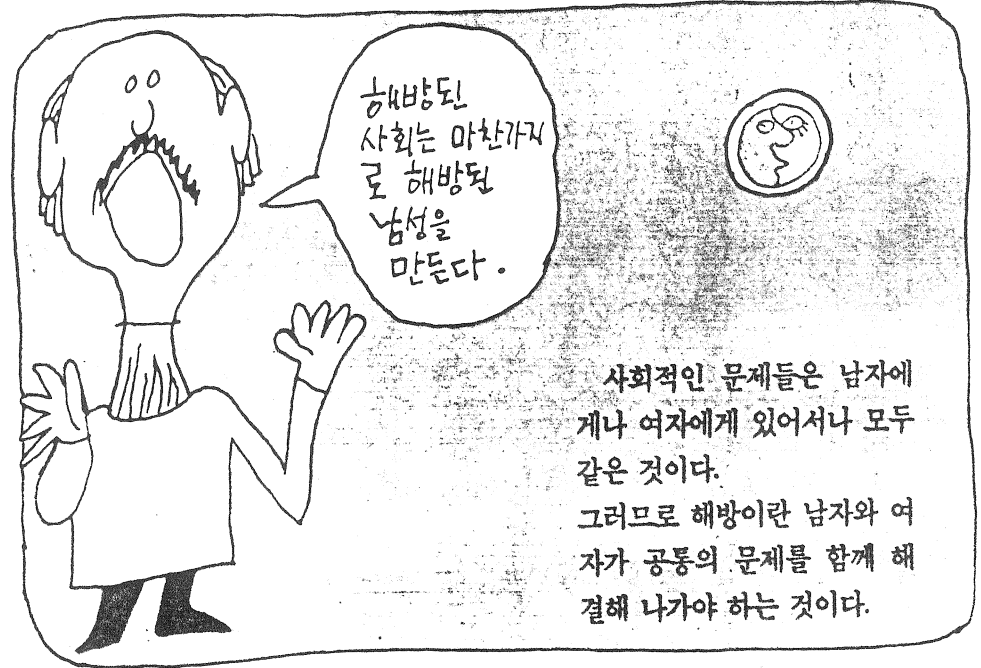 해방된
사회는 마찬가지
로 해방된
남성을
만든다.
사회적인 문제들은 남자에
게나 여자에게 있어서나 모두
같은 것이다.
그러므로 해방이란 남자와 여
자가 공통의 문제를 함께 해
결해 나가야 하는 것이다.